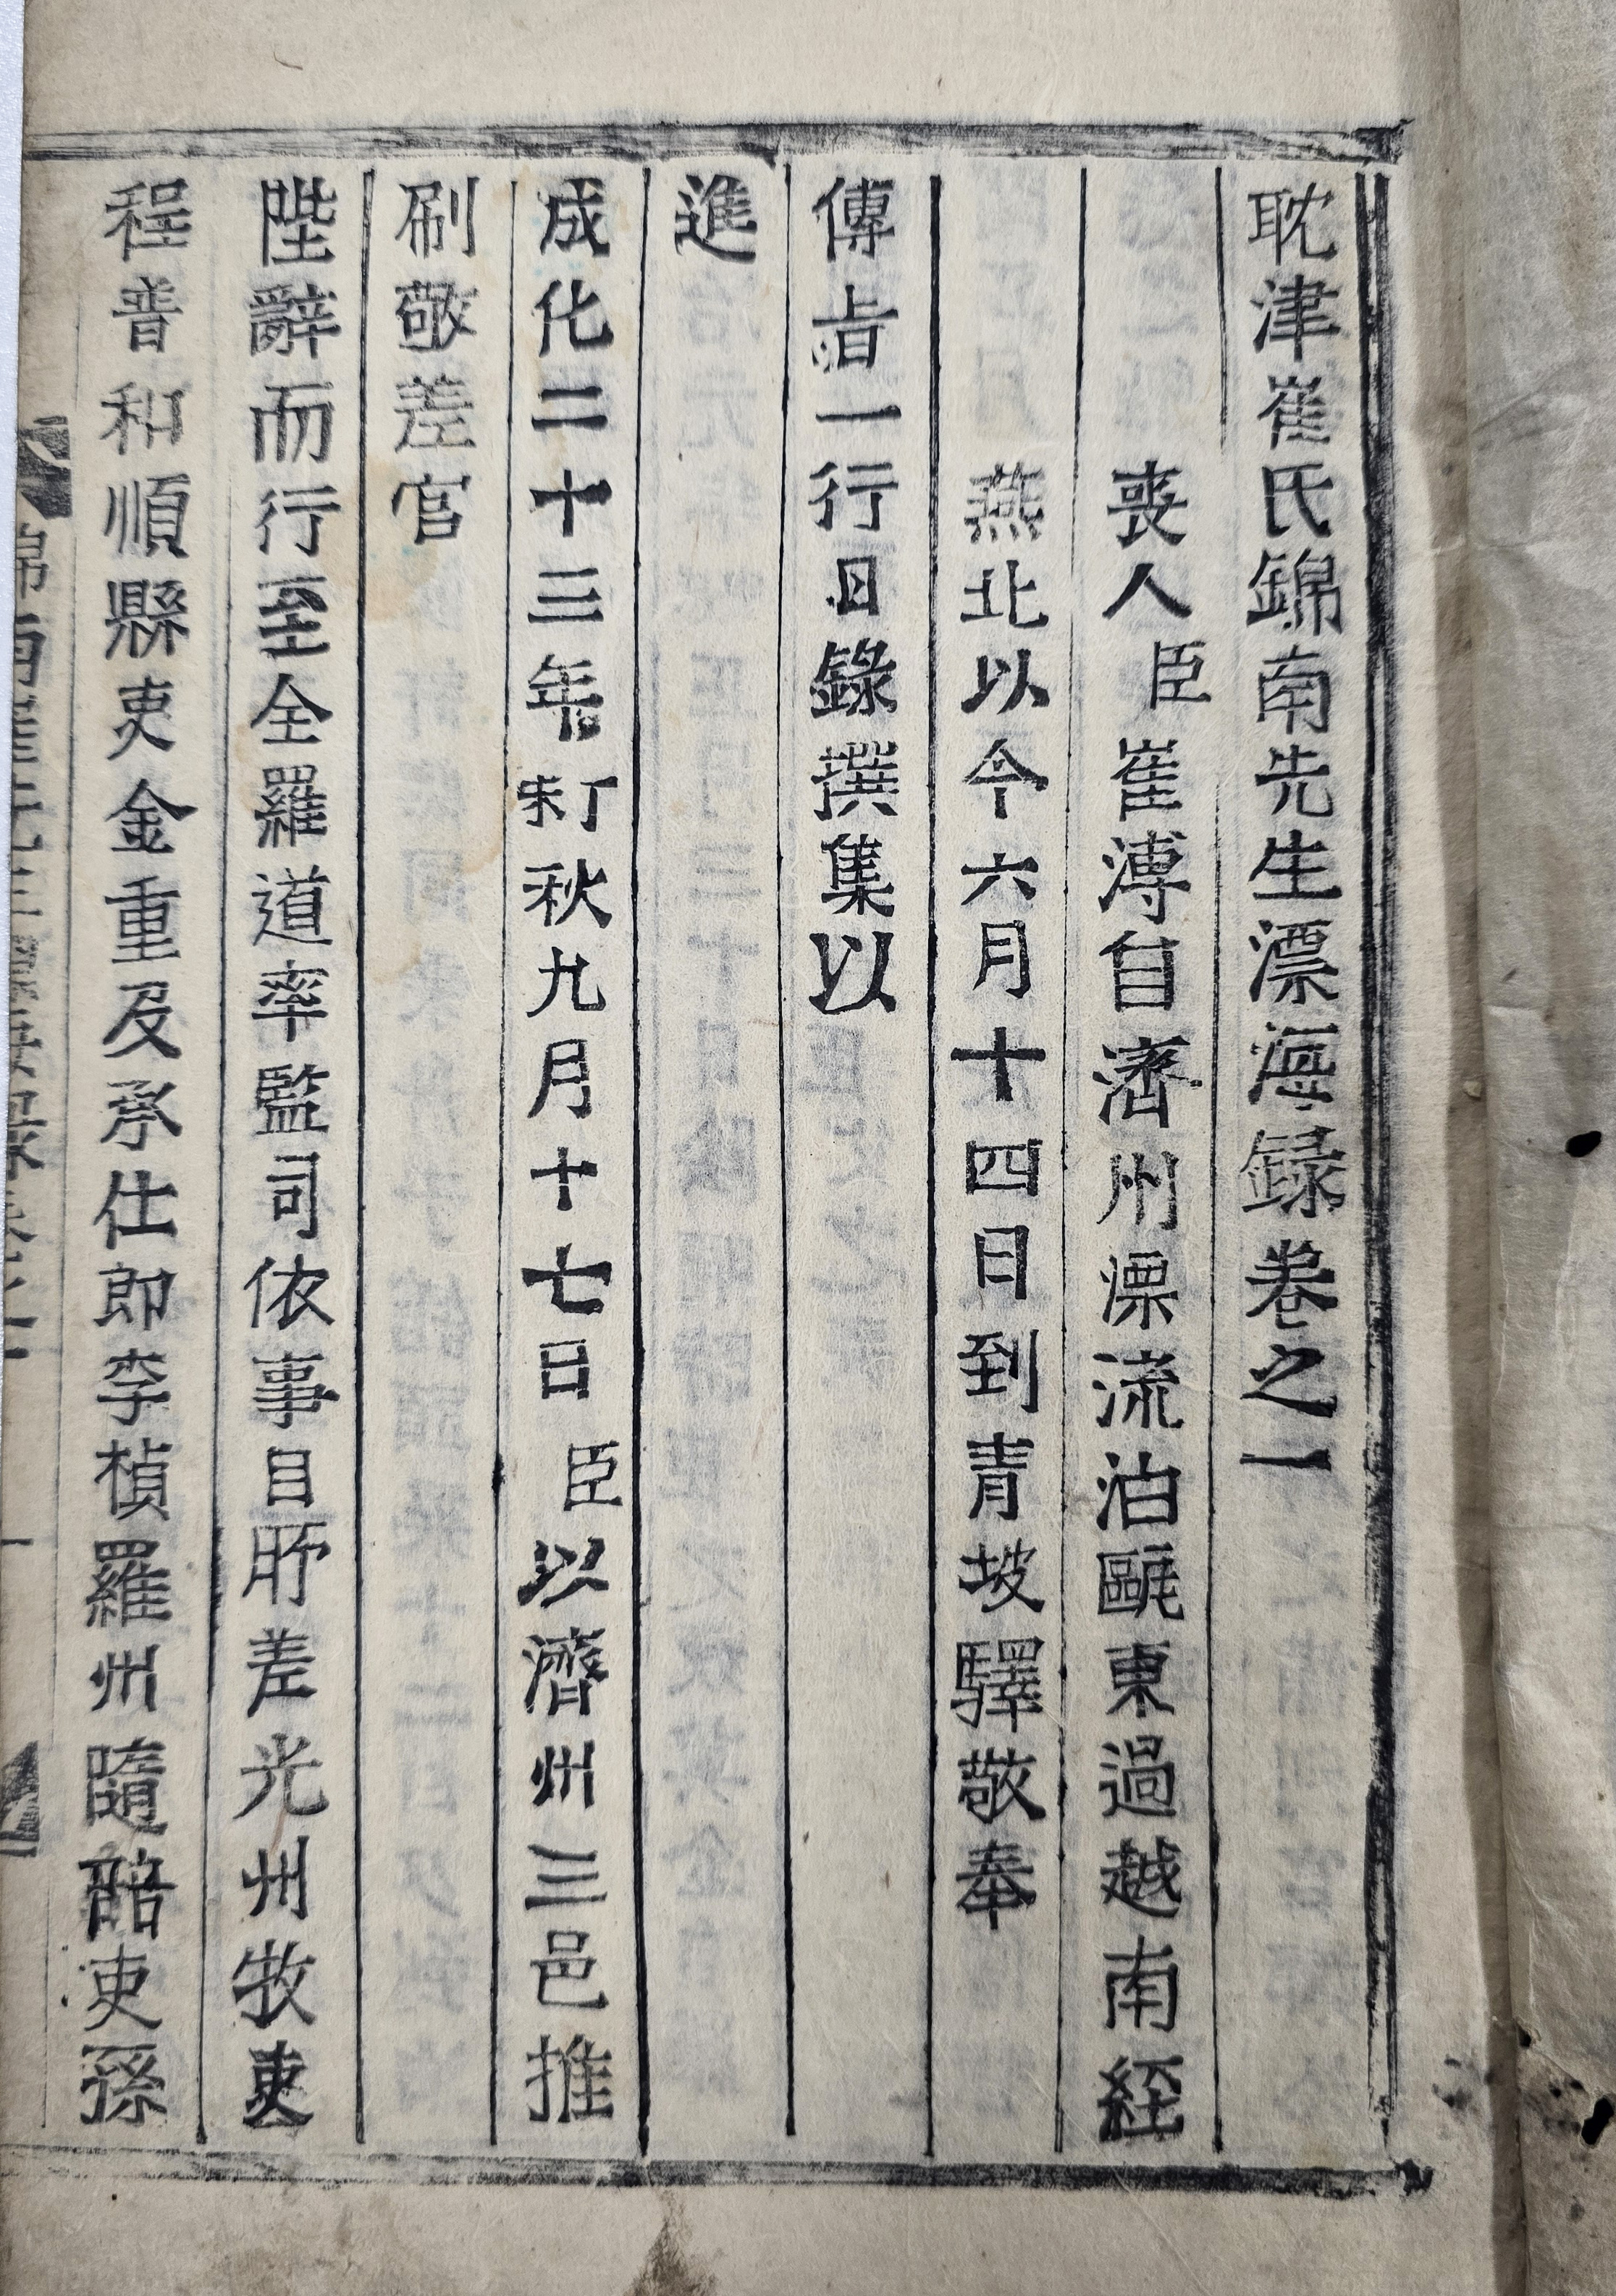 耽津崔氏錦南先生漂海録卷之一
喪人臣崔溥自濟州漂流泊甌東過越南經
燕北以今六月十四日到青坡驛敬奉
傳旨一行日錄撰集以
進
成化二十三年丁未秋九月十七日臣以濟州三邑推
刷敬差官
陛辭而行至全羅道率監司依事目所差光州牧吏
程普和順縣吏金重及承仕郎李楨羅州隨陪吏孫